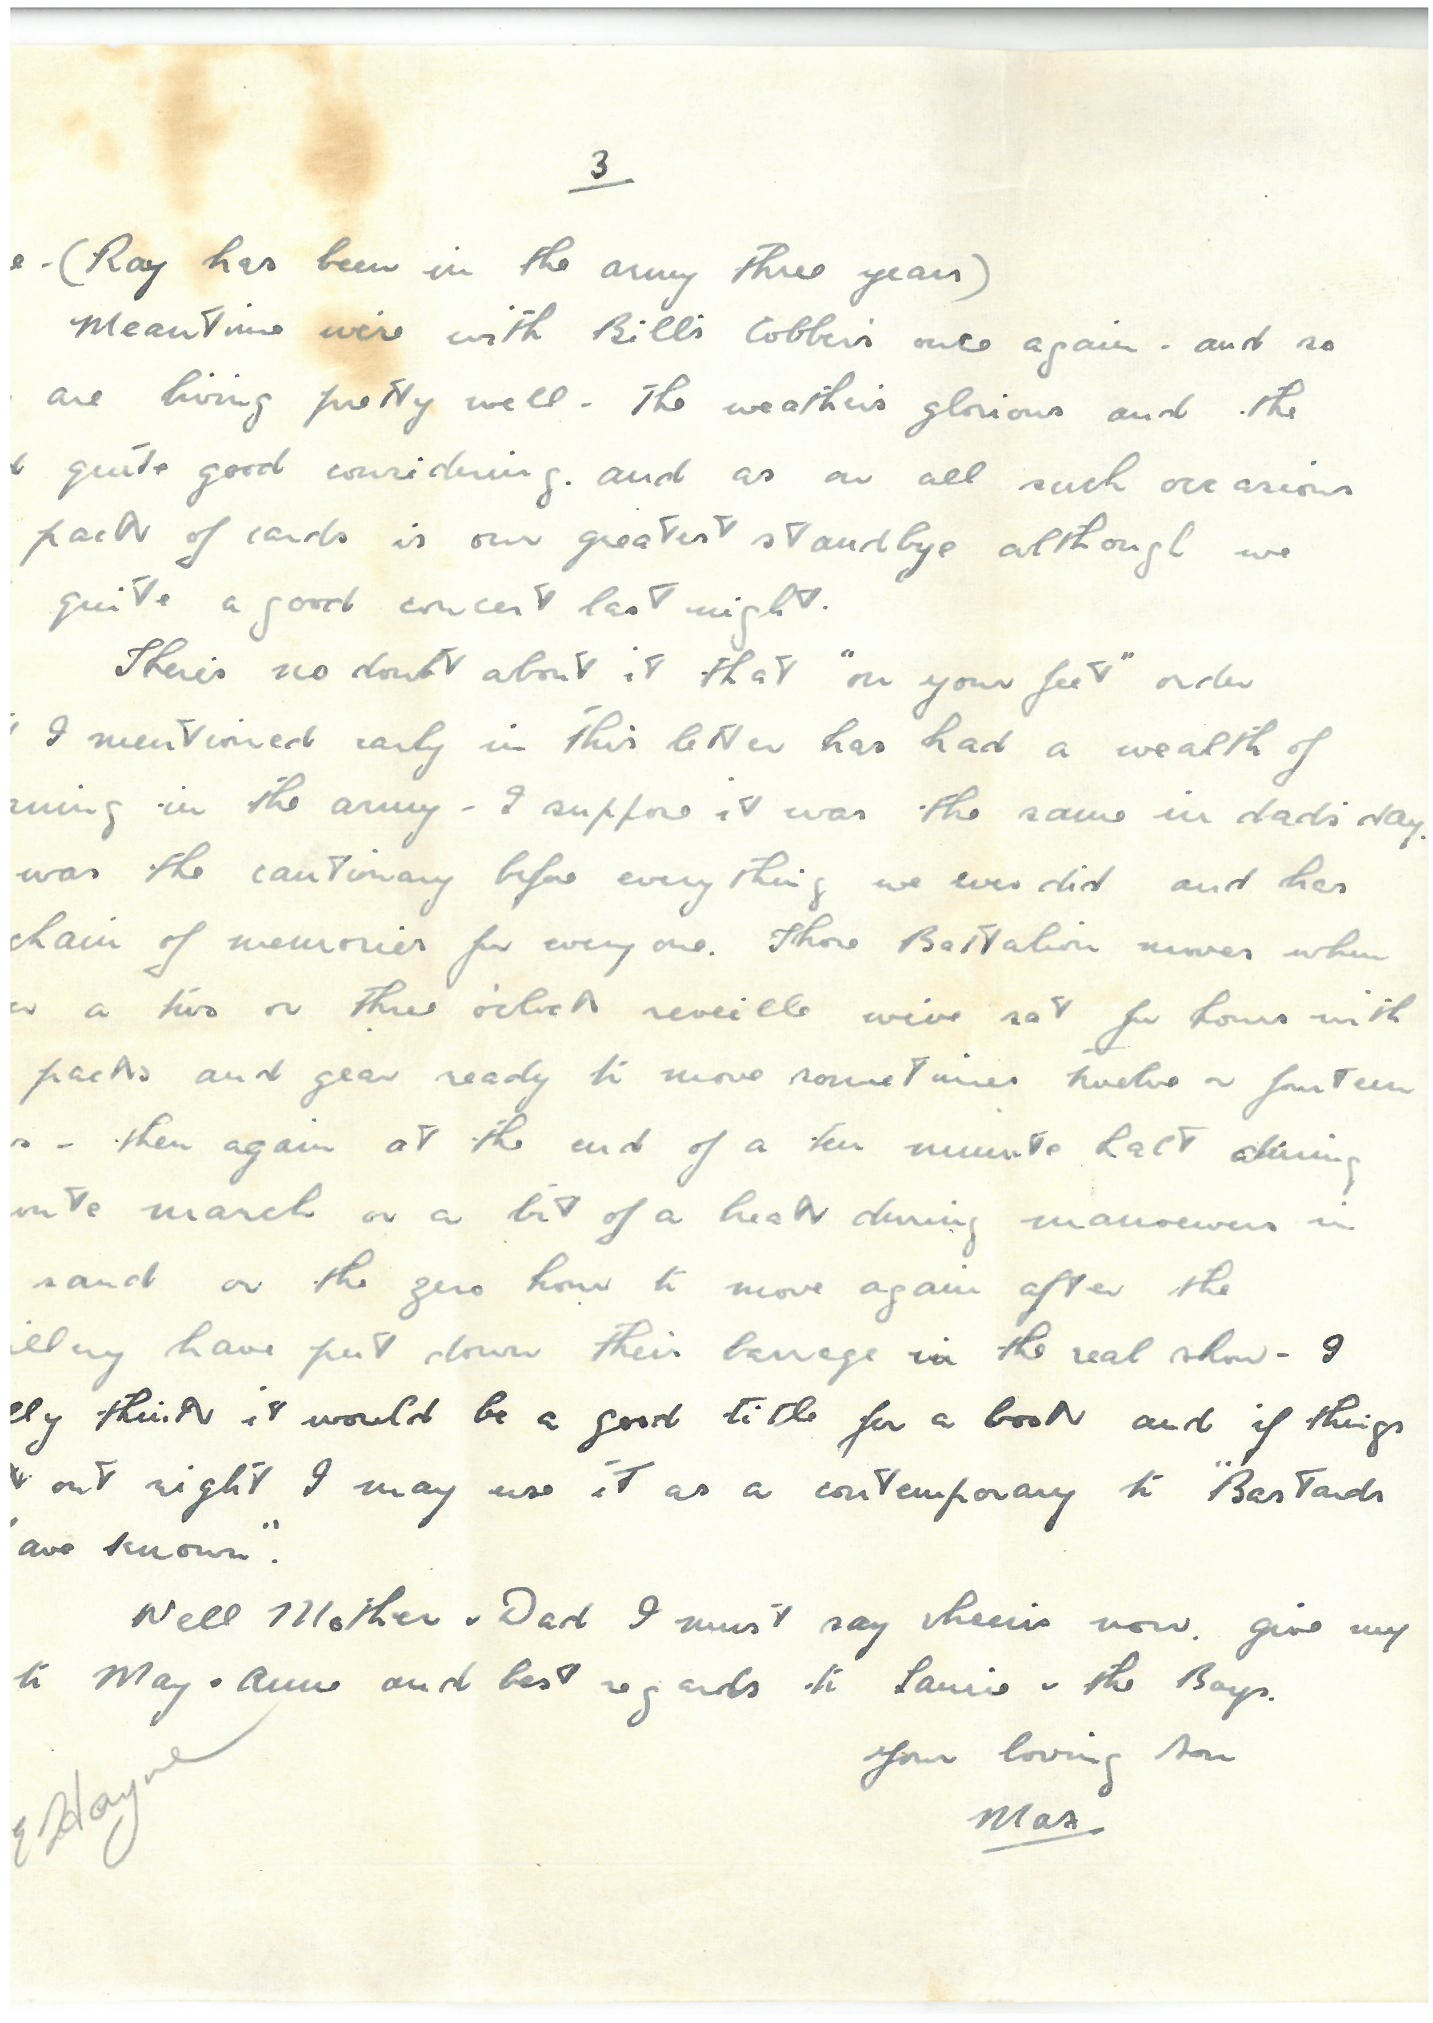 3
e - (Ray has been in the army three years)
Meantime we're with Bill's Cobbers once again - and so
are living pretty well - The weather's glorious and the
d quite good considering. and as on all such occasions
pack of cards is our greatest standbye although we
quite a good concert last night.
There's no doubt about it that "on your feet" order
t I mentioned early in this letter has had a wealth of
aning in the army - I suppose it was the same in dad's day.
was the cautionary before everything we ever did and has
chain of memories for everyone. Those Battalion moves when
er a two or three o'clock reveille we've sat for hours with
packs and gear ready to move sometimes twelve or fourteen
s - then again at the end of a ten minute halt during
oute march or a bit of a break during manoevers in
sand or the zero hour to move again after the
illery have put down their barrage in the real show - I
lly think it would be a good title for a book and if things
out right I may use it as a contemporary to "Bastards
ave known".
Well Mother & Dad I must say cheerio now. give my
to May & Anne and best regards to Laurie & the Boys.
Your loving son
Max
Hayne